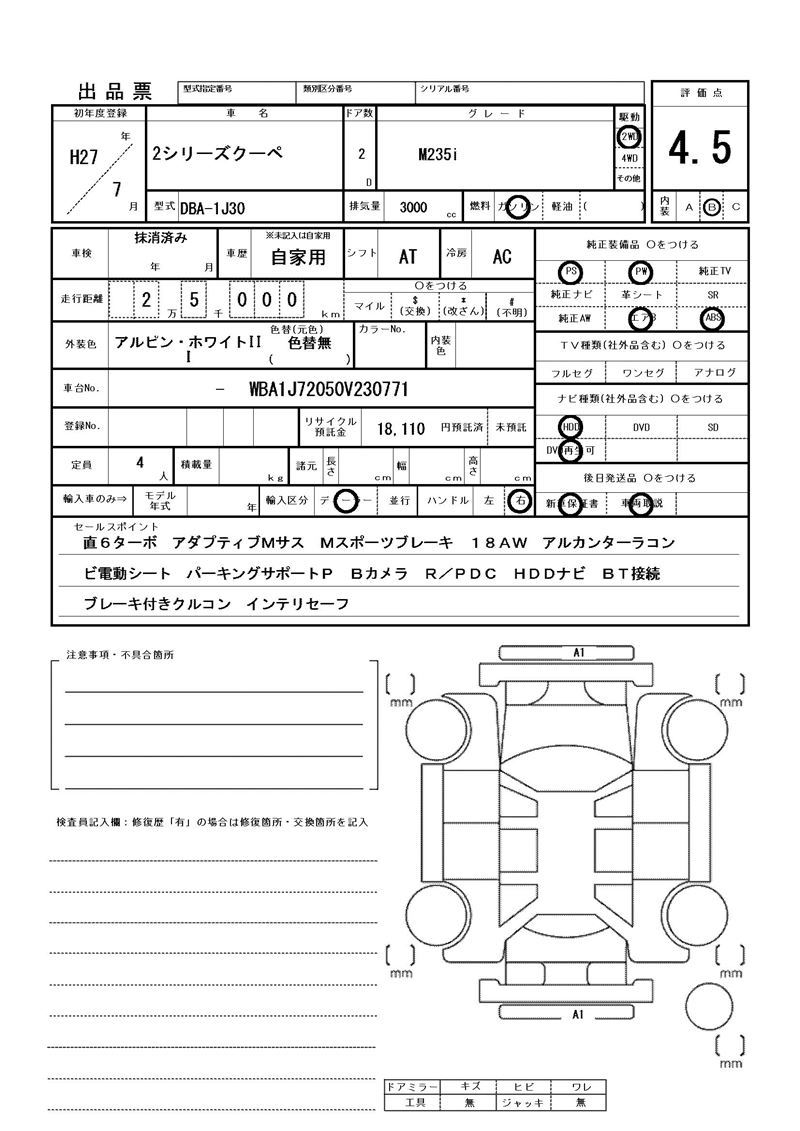 出品票 型式指定番号 類別区分番号 シリアル番号 評価点
初年度登録 車名 ドア数 グレード 駆動
H27 年 7 月 2シリーズクーペ 2 D M235i 2WD 4WD その他 4.5
型式 DBA-1J30 排気量 3000 cc 燃料 ガソリン 軽油 ( ) 内装 A B C
車検 抹消済み 年 月 車歴 ※未記入は自家用 自家用 シフト AT 冷房 AC 純正装備品 ○をつける
PS PW 純正TV
走行距離 2 万 5 千 0 0 0 km ○をつける 純正ナビ 革シート SR
マイル $(交換) *(改ざん) #(不明) 純正AW エアB ABS
外装色 アルビン・ホワイトIII 色替(元色) 色替無 ( ) カラーNo. 内装色 TV種類(社外品含む) ○をつける
フルセグ ワンセグ アナログ
車台No. - WBA1J72050V230771 ナビ種類(社外品含む) ○をつける
登録No. リサイクル預託金 18,110 円預託済 未預託 HDD DVD SD
DVD再生可
定員 4 人 積載量 kg 諸元 長さ cm 幅 cm 高さ cm 後日発送品 ○をつける
輸入車のみ⇒ モデル年式 年 輸入区分 ディーラー 並行 ハンドル 左 右 新車保証書 車両取説
セールスポイント
直6ターボ アダプティブMサス Mスポーツブレーキ 18AW アルカンターラコン
ビ電動シート パーキングサポートP Bカメラ R/PDC HDDナビ BT接続
ブレーキ付きクルコン インテリセーフ
注意事項・不具合箇所
A1
mm mm
検査員記入欄：修復歴「有」の場合は修復箇所・交換箇所を記入
mm mm
A1
mm
ドアミラー キズ ヒビ ワレ
工具 無 ジャッキ 無